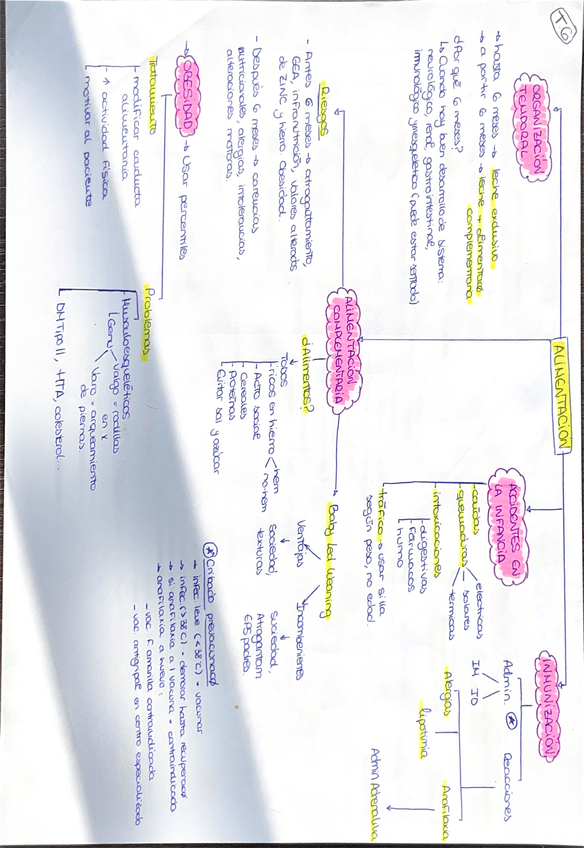 T6
ALIMENTACIÓN
ORGANIZACIÓN
TEMPORAL
→ hasta 6 meses → leche exclusiva
→ a partir 6 meses → leche + alimentarc
complementaria
¿Por qué 6 meses?
↳ Cuando hay buen desarrollo de sistema:
neurológico, renal, gastrointestinal,
inmunológico y esquelético (puede estar sentado)
ALIMENTACIÓN
COMPLEMENTARIA
Riesgos
- Antes 6 meses → atragantamiento,
GEA, infranutrición, valores alterados
de ZINC y hierro Obesidad.
- Después 6 meses → carencias
nutricionales, alergias, intolerancias,
alteraciones motoras.
¿Alimentos?
Todos
- ricos en hierro < hem
no-hem
- Cereales
- Proteínas
Evitar sal y azúcar
Baby Led Weaning
Ventajas
Saciedad,
texturas
Suciedad,
Atragantam
padres
→ OBESIDAD → Usar percentiles
Tratamiento
- modificar conducta
alimentaria
- ↑ actividad física
motivar al paciente
Problemas
- Musculoesqueléticos
Genu
valgo = rodillas
en x
varo = arqueamiento
de piernas
DM Tipo II, HTA, colesterol...
ACCIDENTES EN
LA INFANCIA
- caídas
- quemaduras
eléctricas
solares
térmicas
- intoxicaciones
- digestivas
- Fármacos
humo
- tráfico → usar silla
según peso, no edad.
INMUNIZACIÓN
Admin. ⊛
IM ID
Reacciones
Alergias
lipotimia
Anafilaxia
Admin Adrenalina
⊛ Cribado prevacunac
→ infec leve (<38°C) - vacunar
→ infec (>38°C) - demorar hasta recuperac
→ si anafilaxia a 1 vacuna = contraindicada
→ anafilaxia a huevo:
- vac. F. amarilla contraindicada
- vac antigripal en centro especializado